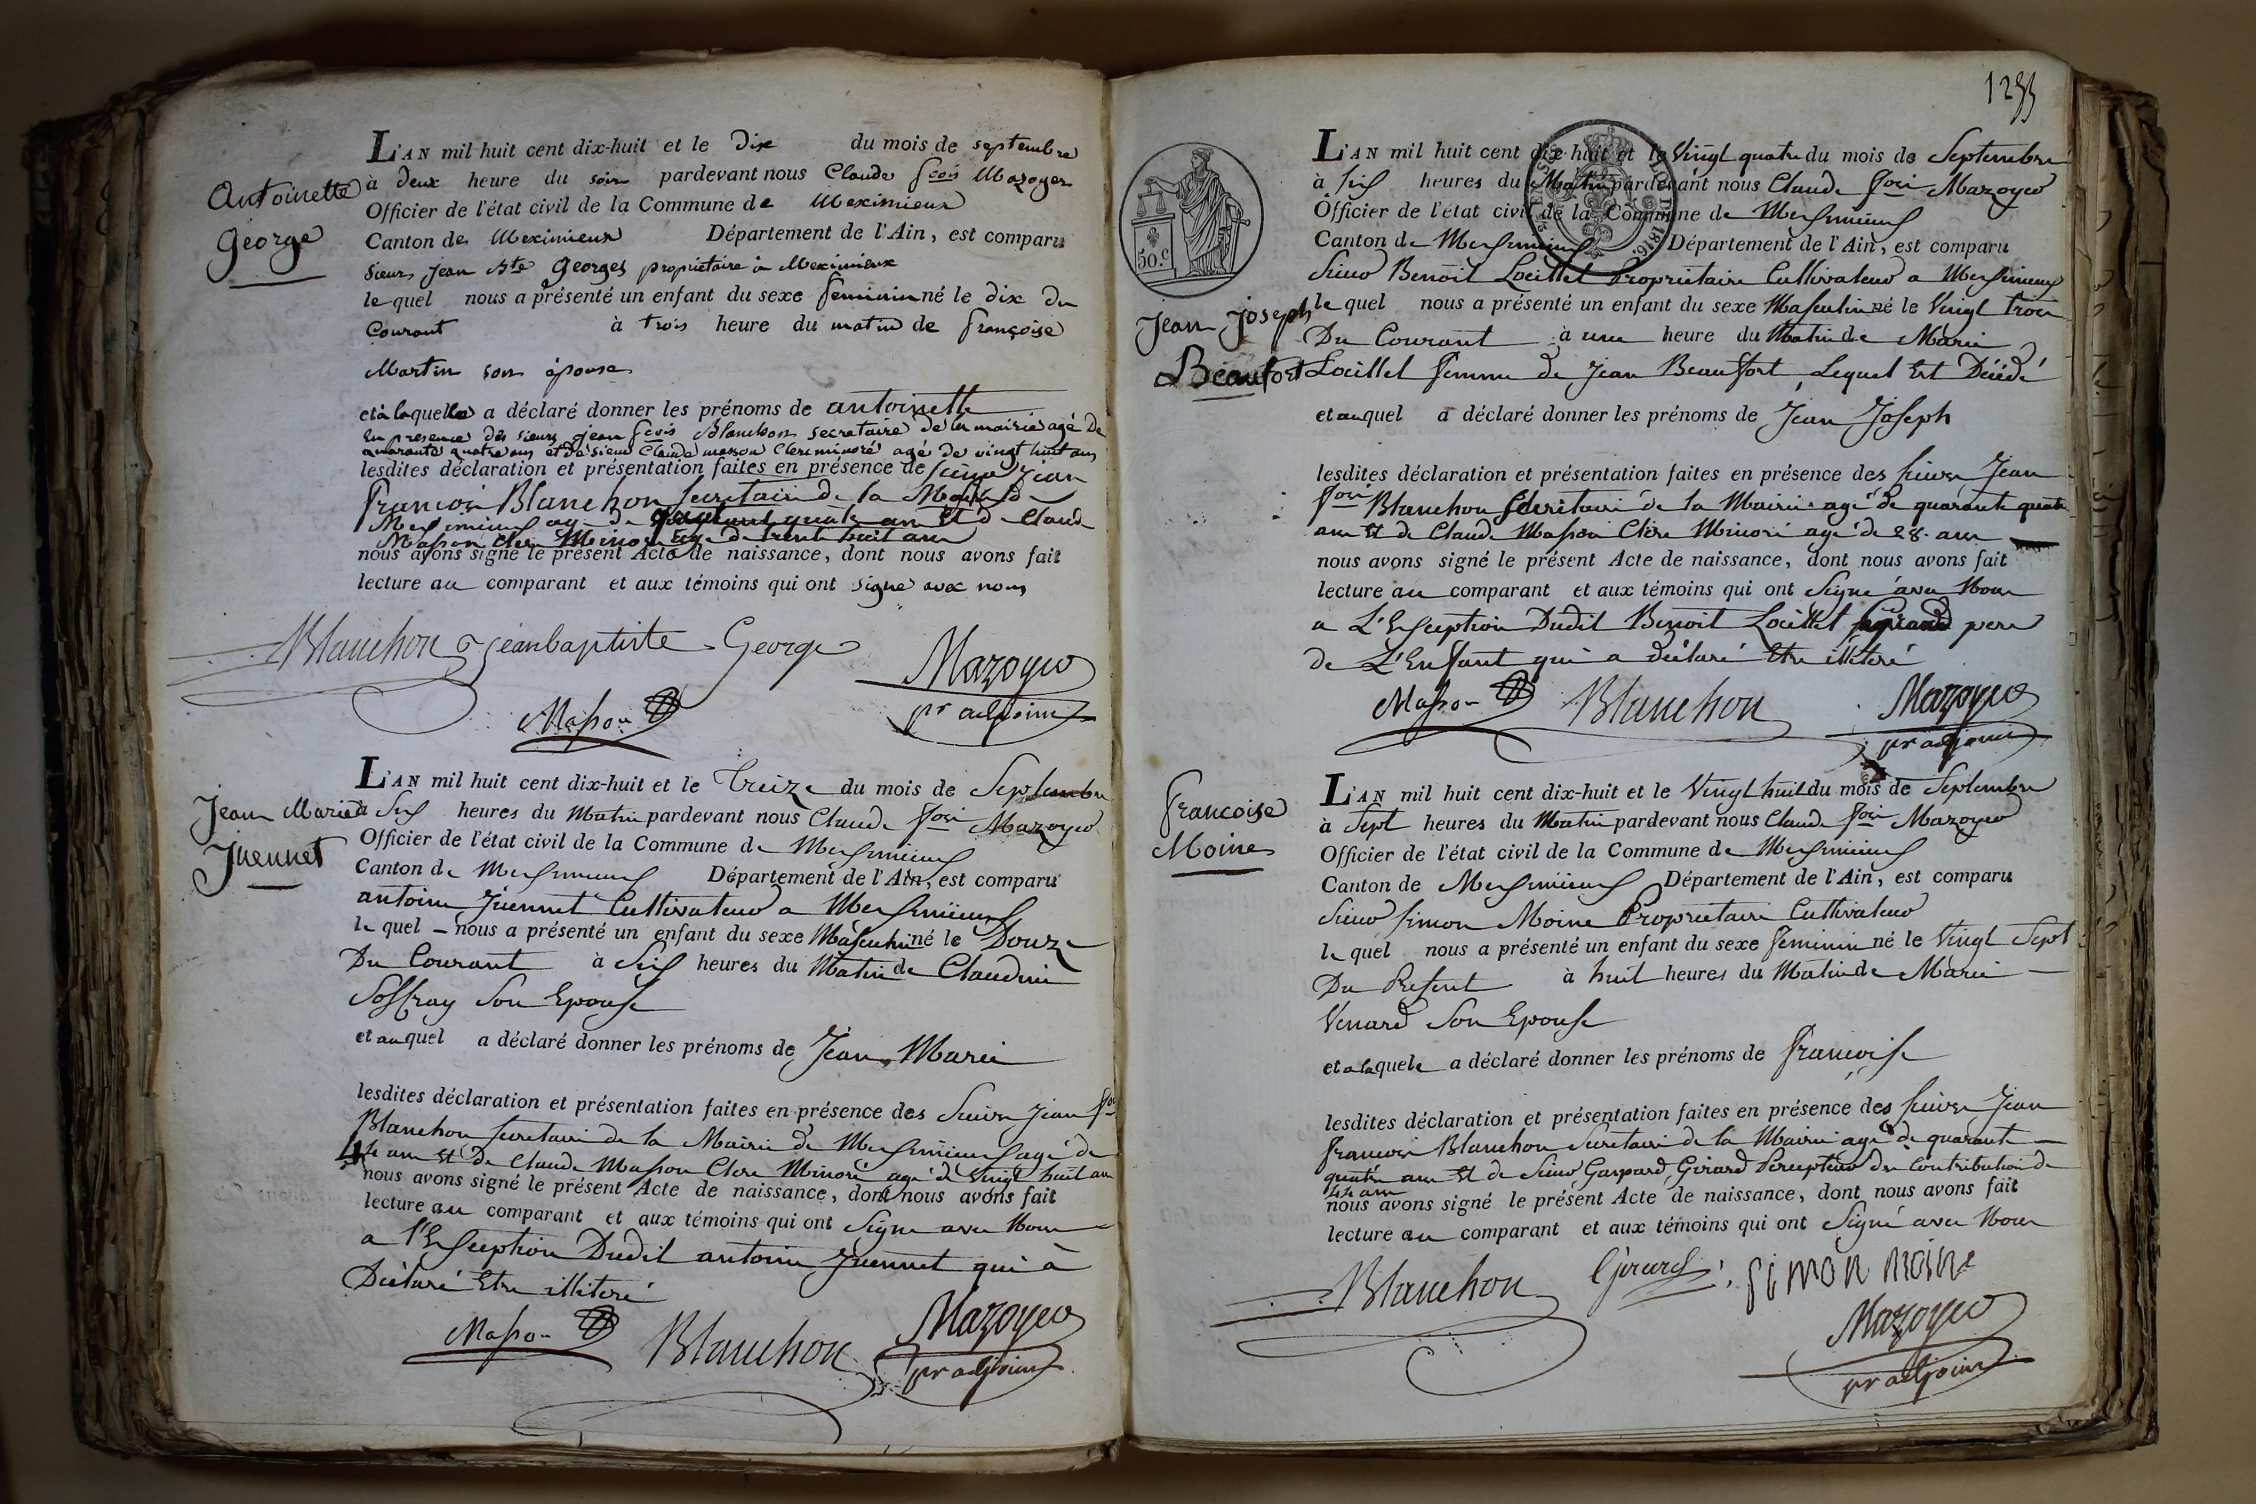 Antoinette
George
L'AN mil huit cent dix-huit et le dix du mois de septembre
à deux heure du soir pardevant nous Claude fcois Mazoyer
Officier de l'état civil de la Commune de Meximieux
Canton de Meximieux Département de l'Ain, est comparu
sieur jean Bte Georges propriétaire à Meximieux
le quel nous a présenté un enfant du sexe feminin né le dix du
Courant à trois heure du matin de françoise
Martin son épouse
et à laquelle a déclaré donner les prénoms de antoinette
en presence des sieurs jean fcois Blanchon secretaire de la mairie agé de
quarante quatre ans et de sieur Claude masson Clerc minoré agé de vingt huit ans
lesdites déclaration et présentation faites en présence de sieur Jean
francois Blanchon secretaire de la Mairie de
Meximieux agé de quarante quatre ans Et de Claude
Masson clerc Minoré agé de trente huit ans
nous avons signé le présent Acte de naissance, dont nous avons fait
lecture au comparant et aux témoins qui ont signé avec nous
Blanchon jeanbaptiste George
Mazoyer
pr adjoint
Masson
Jean Marie
Juennet
L'AN mil huit cent dix-huit et le Treize du mois de Septembre
à Six heures du Matin pardevant nous Claude fois Mazoyer
Officier de l'état civil de la Commune de Meximieux
Canton de Meximieux Département de l'Ain, est comparu
antoine Juennet Cultivateur a Meximieux
le quel nous a présenté un enfant du sexe Masculin né le Douze
Du Courant à Six heures du Matin de Claudine
Soffray Son Epouse
et au quel a déclaré donner les prénoms de Jean Marie
lesdites déclaration et présentation faites en présence des Sieurs Jean fois
Blanchon secretaire de la Mairie de Meximieux agé de
44 ans Et de Claude Masson Clerc Minoré agé de Vingt huit ans
nous avons signé le présent Acte de naissance, dont nous avons fait
lecture au comparant et aux témoins qui ont Signé avec Nous
a l'Exception Dudit antoine Juennet qui à
Déclaré Etre illiteré
Masson Blanchon Mazoyer
pr adjoint
1255
50.c
1816
Jean Joseph
Beaufort
L'AN mil huit cent dix-huit et le Vingt quatre du mois de Septembre
à Six heures du Matin pardevant nous Claude fois Mazoyer
Officier de l'état civil de la Commune de Meximieux
Canton de Meximieux Département de l'Ain, est comparu
Sieur Benoit Loeillet Proprietaire Cultivateur a Meximieux
le quel nous a présenté un enfant du sexe Masculin né le Vingt trois
Du Courant à une heure du Matin de Marie
Loeillet femme de Jean Beaufort, Lequel Est Décédé
et au quel a déclaré donner les prénoms de Jean Joseph
lesdites déclaration et présentation faites en présence des sieurs Jean
fois Blanchon Secretaire de la Mairie agé de quarante quatre
ans Et de Claude Masson Clerc Minoré agé de 28. ans
nous avons signé le présent Acte de naissance, dont nous avons fait
lecture au comparant et aux témoins qui ont Signé avec Nous
a L'Exception Dudit Benoit Loeillet grand pere
de L'Enfant qui a déclaré Etre illiteré
Masson Blanchon Mazoyer
pr adjoint
francoise
Moine
L'AN mil huit cent dix-huit et le Vingt huit du mois de Septembre
à Sept heures du Matin pardevant nous Claude fois Mazoyer
Officier de l'état civil de la Commune de Meximieux
Canton de Meximieux Département de l'Ain, est comparu
Sieur Simon Moine Proprietaire Cultivateur
le quel nous a présenté un enfant du sexe feminin né le Vingt Sept
Du Present à huit heures du Matin de Marie
Venard Son Epouse
et a laquele a déclaré donner les prénoms de francoise
lesdites déclaration et présentation faites en présence des sieurs Jean
francois Blanchon Secretaire de la Mairie agé de quarante
quatre ans Et de Sieur Gaspard Girard Percepteur des Contributions de
44 ans
nous avons signé le présent Acte de naissance, dont nous avons fait
lecture au comparant et aux témoins qui ont Signé avec Nous
Blanchon Girard simon moine
Mazoyer
pr adjoint